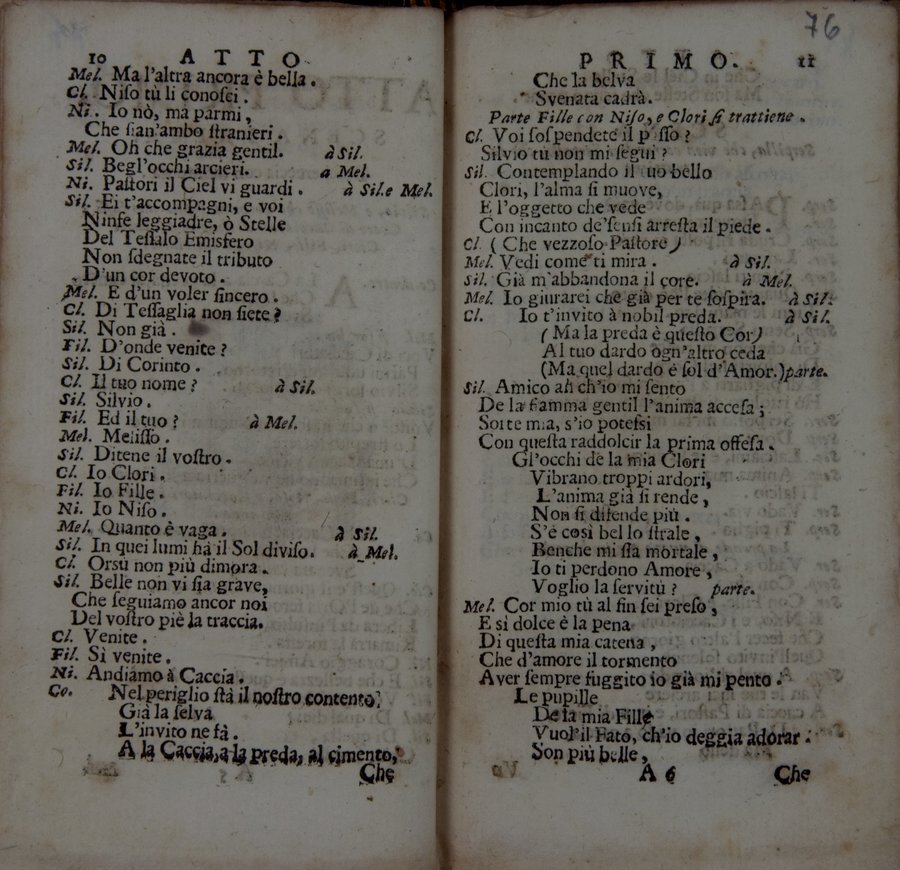 10 ATTO
Mel. Ma l'altra ancora è bella.
Cl. Niſo tù li conoſci.
Ni. Io nò, ma parmi,
Che ſian'ambo ſtranieri.
Mel. Oh che grazia gentil. à Sil.
Sil. Begl'occhi arcieri. a Mel.
Ni. Paſtori il Ciel vi guardi. à Sil.e Mel.
Sil. Ei t'accompagni, e voi
Ninfe leggiadre, ò Stelle
Del Teſſalo Emisfero
Non ſdegnate il tributo
D'un cor devoto.
Mel. E d'un voler ſincero.
Cl. Di Teſſaglia non ſiete?
Sil. Non già.
Fil. D'onde venite?
Sil. Di Corinto.
Cl. Il tuo nome? à Sil.
Sil. Silvio.
Fil. Ed il tuo? à Mel.
Mel. Meliſſo.
Sil. Ditene il voſtro.
Cl. Io Clori.
Fil. Io Fille.
Ni. Io Niſo.
Mel. Quanto è vaga. à Sil.
Sil. In quei lumi hà il Sol diviſo. à Mel.
Cl. Orsù non più dimora.
Sil. Belle non vi ſia grave,
Che ſeguiamo ancor noi
Del voſtro piè la traccia.
Cl. Venite.
Fil. Sì venite.
Ni. Andiamo à Caccia.
Co. Nel periglio ſtà il noſtro contento,
Già la ſelva
L'invito ne fà.
A la Caccia, a la preda, al cimento,
Che
76
PRIMO. 11
Che la belva
Svenata cadrà.
Parte Fille con Niſo, e Clori ſi trattiene.
Cl. Voi ſoſpendete il paſſo?
Silvio tù non mi ſegui?
Sil. Contemplando il tuo bello
Clori, l'alma ſi muove,
E l'oggetto che vede
Con incanto de'ſenſi arreſta il piede.
Cl. (Che vezzoſo Paſtore)
Mel. Vedi come ti mira. à Sil.
Sil. Già m'abbandona il core. à Mel.
Mel. Io giurarei che già per te ſoſpira. à Sil.
Cl. Io t'invito à nobil preda. à Sil.
(Ma la preda è queſto Cor)
Al tuo dardo ogn'altro ceda
(Ma quel dardo è ſol d'Amor.) parte.
Sil. Amico ah ch'io mi ſento
De la fiamma gentil l'anima acceſa;
Sorte mia, s'io poteſſi
Con queſta raddolcir la prima offeſa.
Gl'occhi de la mia Clori
Vibrano troppi ardori,
L'anima già ſi rende,
Non ſi difende più.
S'è così bel lo ſtrale,
Benche mi ſia mortale,
Io ti perdono Amore,
Voglio la ſervitù? parte.
Mel. Cor mio tù al fin ſei preſo,
E sì dolce è la pena
Di queſta mia catena,
Che d'amore il tormento
Aver ſempre fuggito io già mi pento.
Le pupille
De la mia Fille
Vuol'il Fato, ch'io deggia adorar.
Son più belle,
A 6 Che